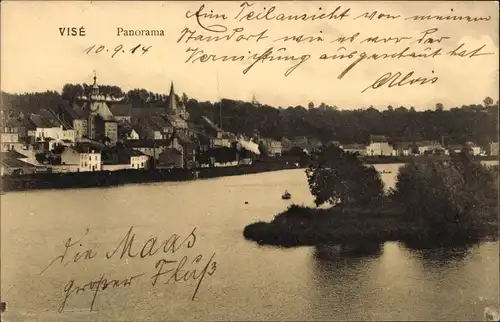 VISÉ Panorama
10.9.14
Ein Teilansicht von meinem
Standort wie es vor der
Vernichtung ausgeschaut hat
Alois
die Maas
großer Fluß